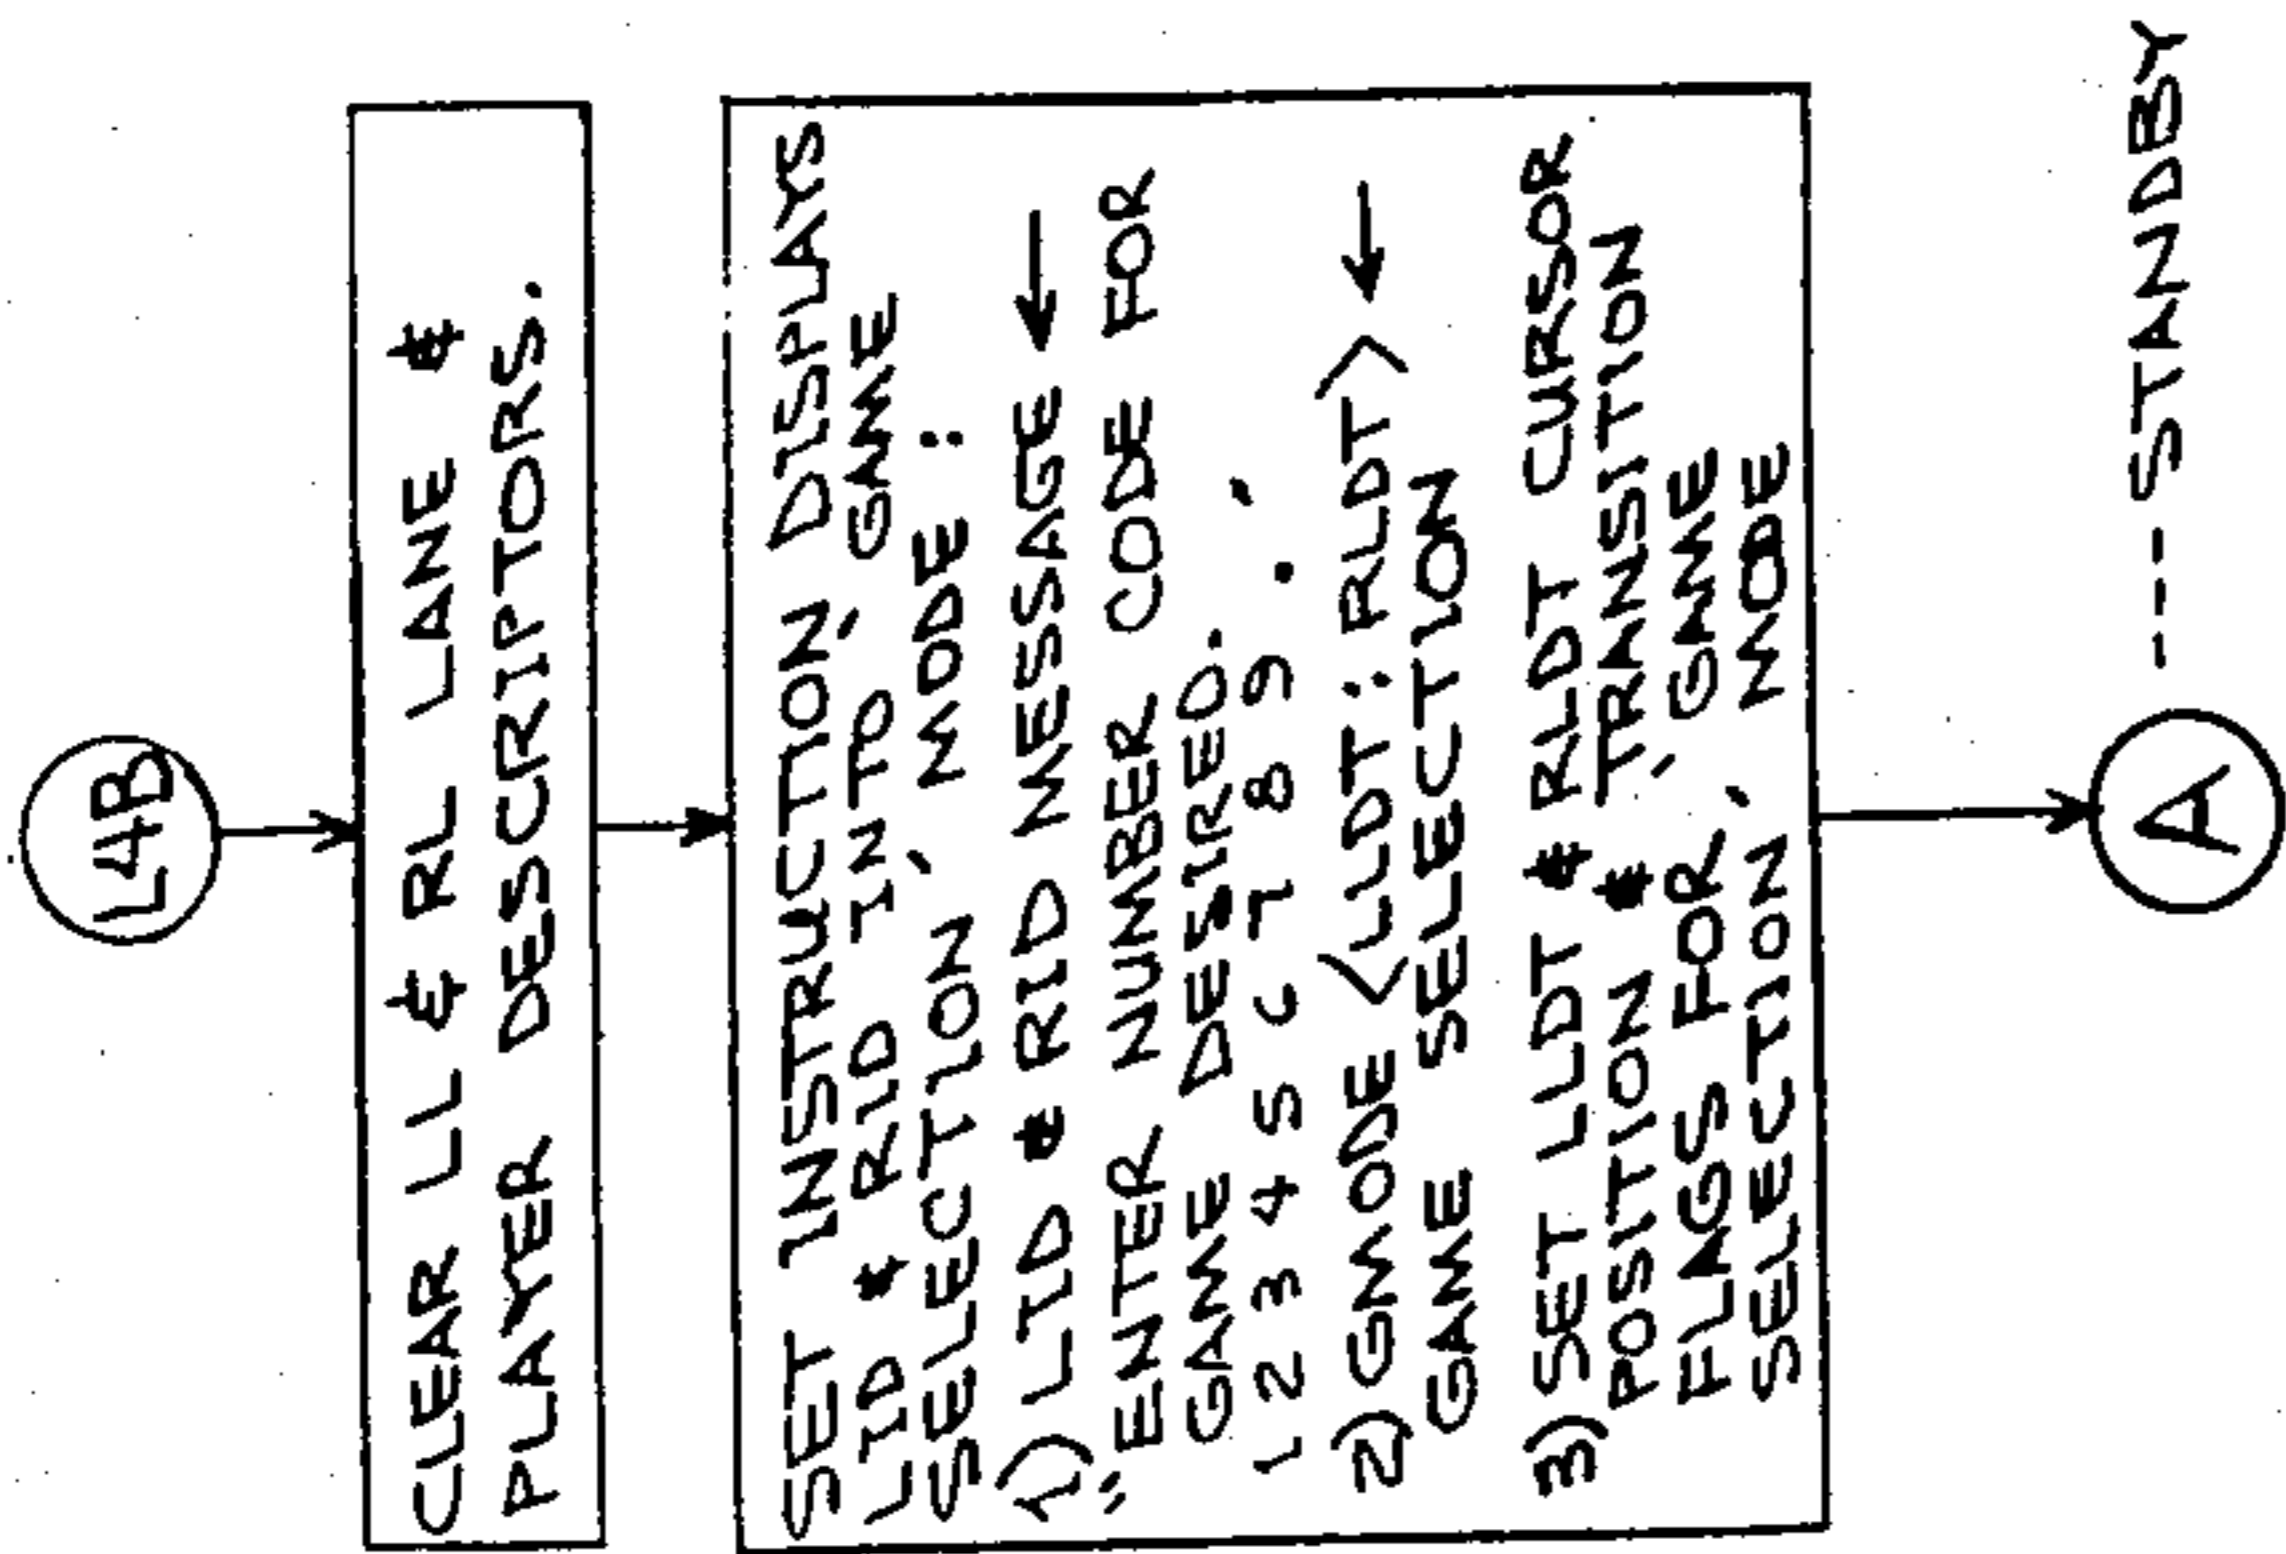 L4B
CLEAR LL & RL LANE &
PLAYER DESCRIPTORS.
SET INSTRUCTION DISPLAYS
LID & RID INTO 'GAME
SELECTION' MODE:
1) LID & RID MESSAGE ←
"ENTER NUMBER CODE FOR
GAME DESIRED.
1 2 3 4 5 6 7 8 9 . '
2) GMODE <LLDT: RLDT> ←
GAME SELECTION
3) SET LLDT & RLDT CURSOR
POSITION & TRANSITION
FLAGS FOR 'GAME
SELECTION' MODE
A --- STANDBY